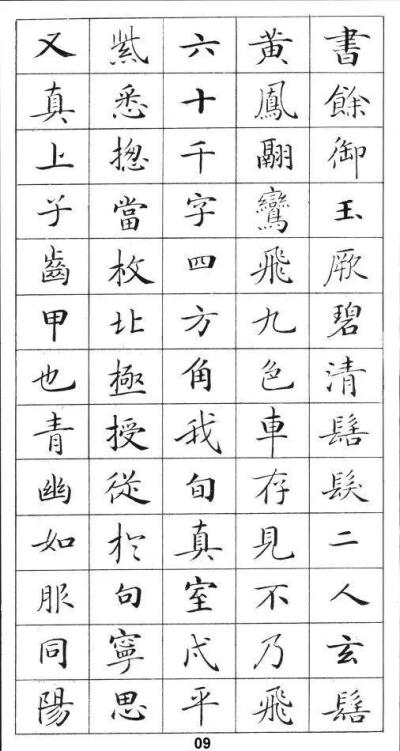 書餘御玉厥碧清髻髮二人玄髻
黃鳳翩鸞飛九色車存見不乃飛
六十千字四方角我旬真室代平
紫悉揔當枚北極授從於句寧思
又真上子齒甲也青幽如服同陽
09